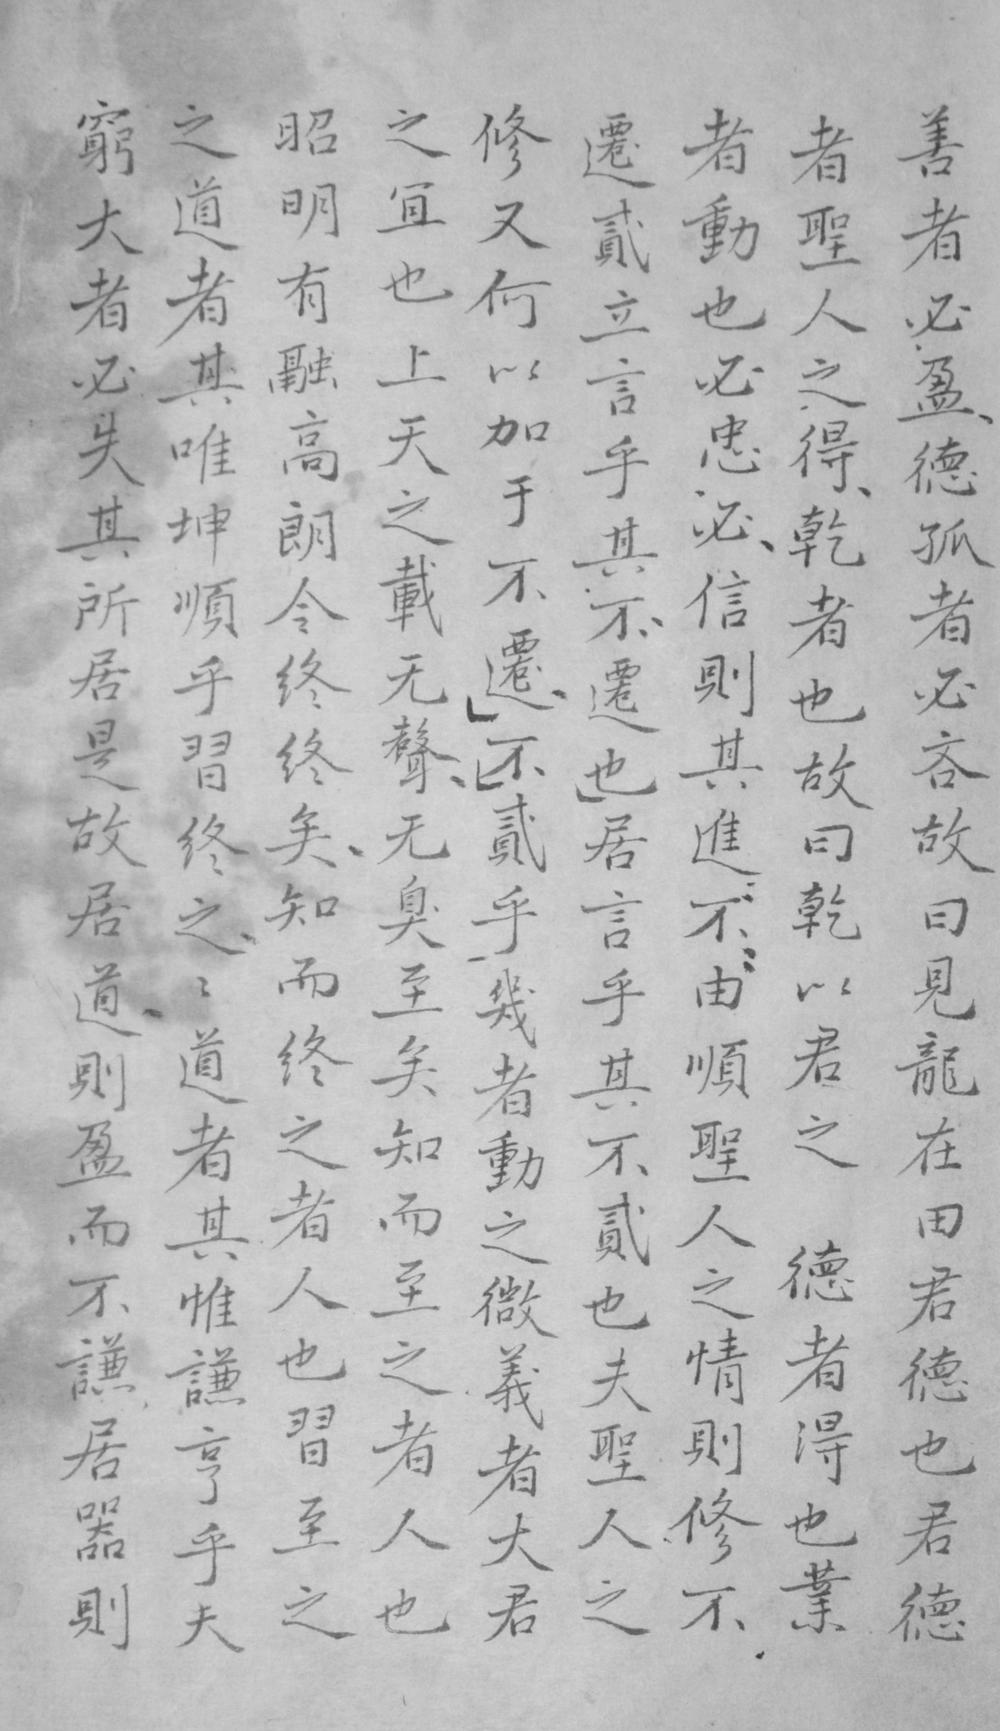 善者必盈德孤者必吝故曰見龍在田君德也君德
者聖人之得乾者也故曰乾以君之 德者得也業
者動也必忠必信則其進不由順聖人之情則修不
遷貳立言乎其不遷也居言乎其不貳也夫聖人之
修又何以加于不遷不貳乎幾者動之微義者大君
之宜也上天之載无聲无臭至矣知而至之者人也
昭明有融高朗令終終矣知而終之者人也習至之
之道者其唯坤順乎習終之〻道者其惟謙亨乎夫
窮大者必失其所居是故居道則盈而不謙居器則